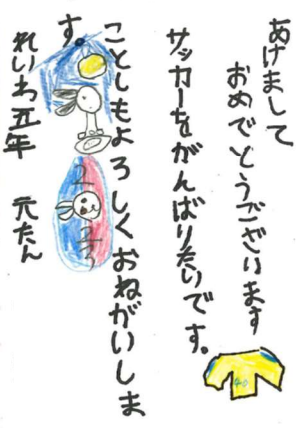 あけまして
おめでとうございます
サッカーをがんばりたいです。
ことしもよろしくおねがいしま
す。
れいわ五年 元たん